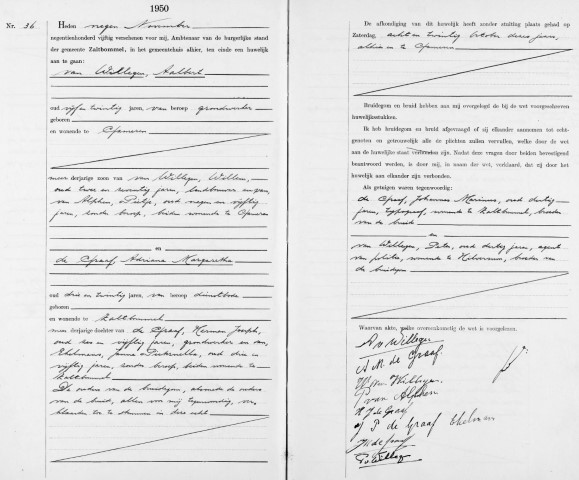 1950
Nr. 36
Heden negen November
negentienhonderd vijftig verschenen voor mij, Ambtenaar van de burgerlijke stand
der gemeente Zaltbommel, in het gemeentehuis alhier, ten einde een huwelijk
aan te gaan:
van Willegen, Aalbert
oud vijf en twintig jaren, van beroep grondwerker
geboren
en wonende te Opheusden
meerderjarige zoon van van Willegen, Willem,
oud twee en zeventig jaren, landbouwer en van
van Alphen, Pietje, oud negen en vijftig
jaren, zonder beroep, beiden wonende te
en
de Graaf, Adriana Margaretha
oud drie en twintig jaren, van beroep dienstbode
geboren
en wonende te Zaltbommel
meerderjarige dochter van de Graaf, Herman Joseph,
oud zes en vijftig jaren, grondwerker en van
Ekelmans, Janna Pieternella, oud drie en
vijftig jaren, zonder beroep, beiden wonende te
Zaltbommel
De ouders van de bruidegom, alsmede de ouders
van de bruid, allen voor mij tegenwoordig, ver-
klaarden toe te stemmen in deze echt
De afkondiging van dit huwelijk heeft zonder stuiting plaats gehad op
Zaterdag, acht en twintig October dezes jaars,
alhier en te
Bruidegom en bruid hebben aan mij overgelegd de bij de wet voorgeschreven
huwelijksstukken.
Ik heb bruidegom en bruid afgevraagd of zij elkander aannemen tot echt-
genoten en getrouwelijk alle de plichten zullen vervullen, welke door de wet
aan de huwelijkse staat verbonden zijn. Nadat deze vragen door beiden bevestigend
beantwoord werden, is door mij, in naam der wet, verklaard, dat zij door het
huwelijk aan elkander zijn verbonden.
Als getuigen waren tegenwoordig:
de Graaf, Johannes Marinus, oud dertig
jaren, typograaf, wonende te Zaltbommel, broeder
van de bruid
en
van Willegen, Pieter, oud dertig jaren, agent
van politie, wonende te Hilversum, broeder van
de bruidegom
Waarvan akte, welke overeenkomstig de wet is voorgelezen.
A v Willegen
A. M. de Graaf
W. van Willegen
P van Alphen
H J de Graaf
J P de Graaf Ekelmans
J M de Graaf
P. v. Willegen